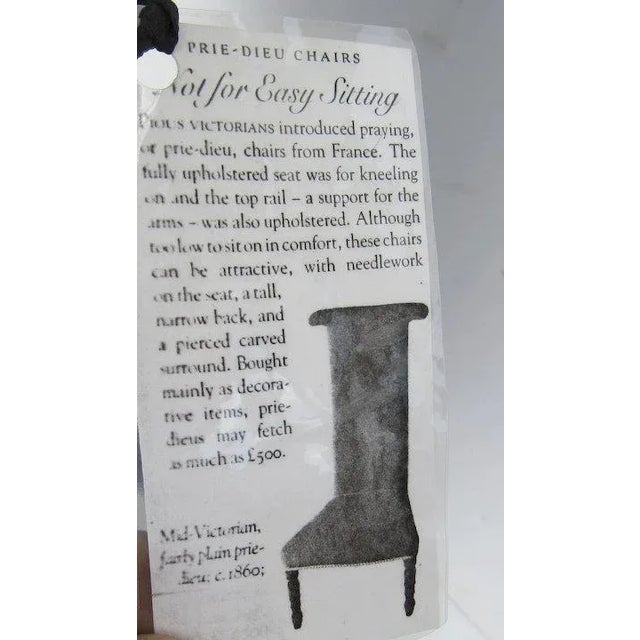 PRIE-DIEU CHAIRS
Not for Easy Sitting
PIOUS VICTORIANS introduced praying,
or prie-dieu, chairs from France. The
fully upholstered seat was for kneeling
on and the top rail – a support for the
arms – was also upholstered. Although
too low to sit on in comfort, these chairs
can be attractive, with needlework
on the seat, a tall,
narrow back, and
a pierced carved
surround. Bought
mainly as decora-
tive items, prie-
dieus may fetch
as much as £500.
Mid-Victorian,
fairly plain prie-
dieu; c.1860;